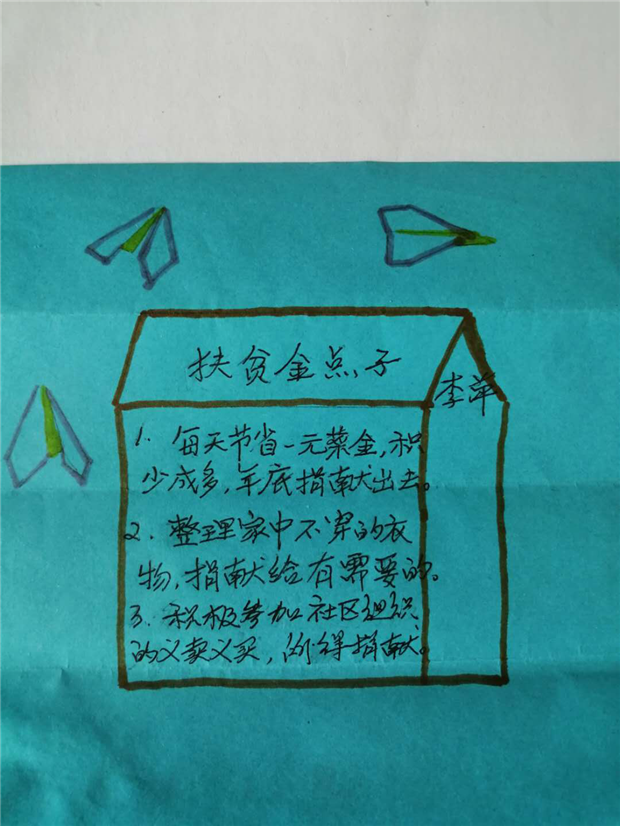 扶贫金点子
李萍
1. 每天节省一元菜金,积
少成多,年底捐献出去。
2. 整理家中不穿的衣
物,捐献给有需要的。
3. 积极参加社区组织
的义卖义买,所得捐献。